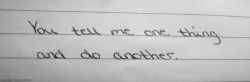 You tell me one thing
and do another.